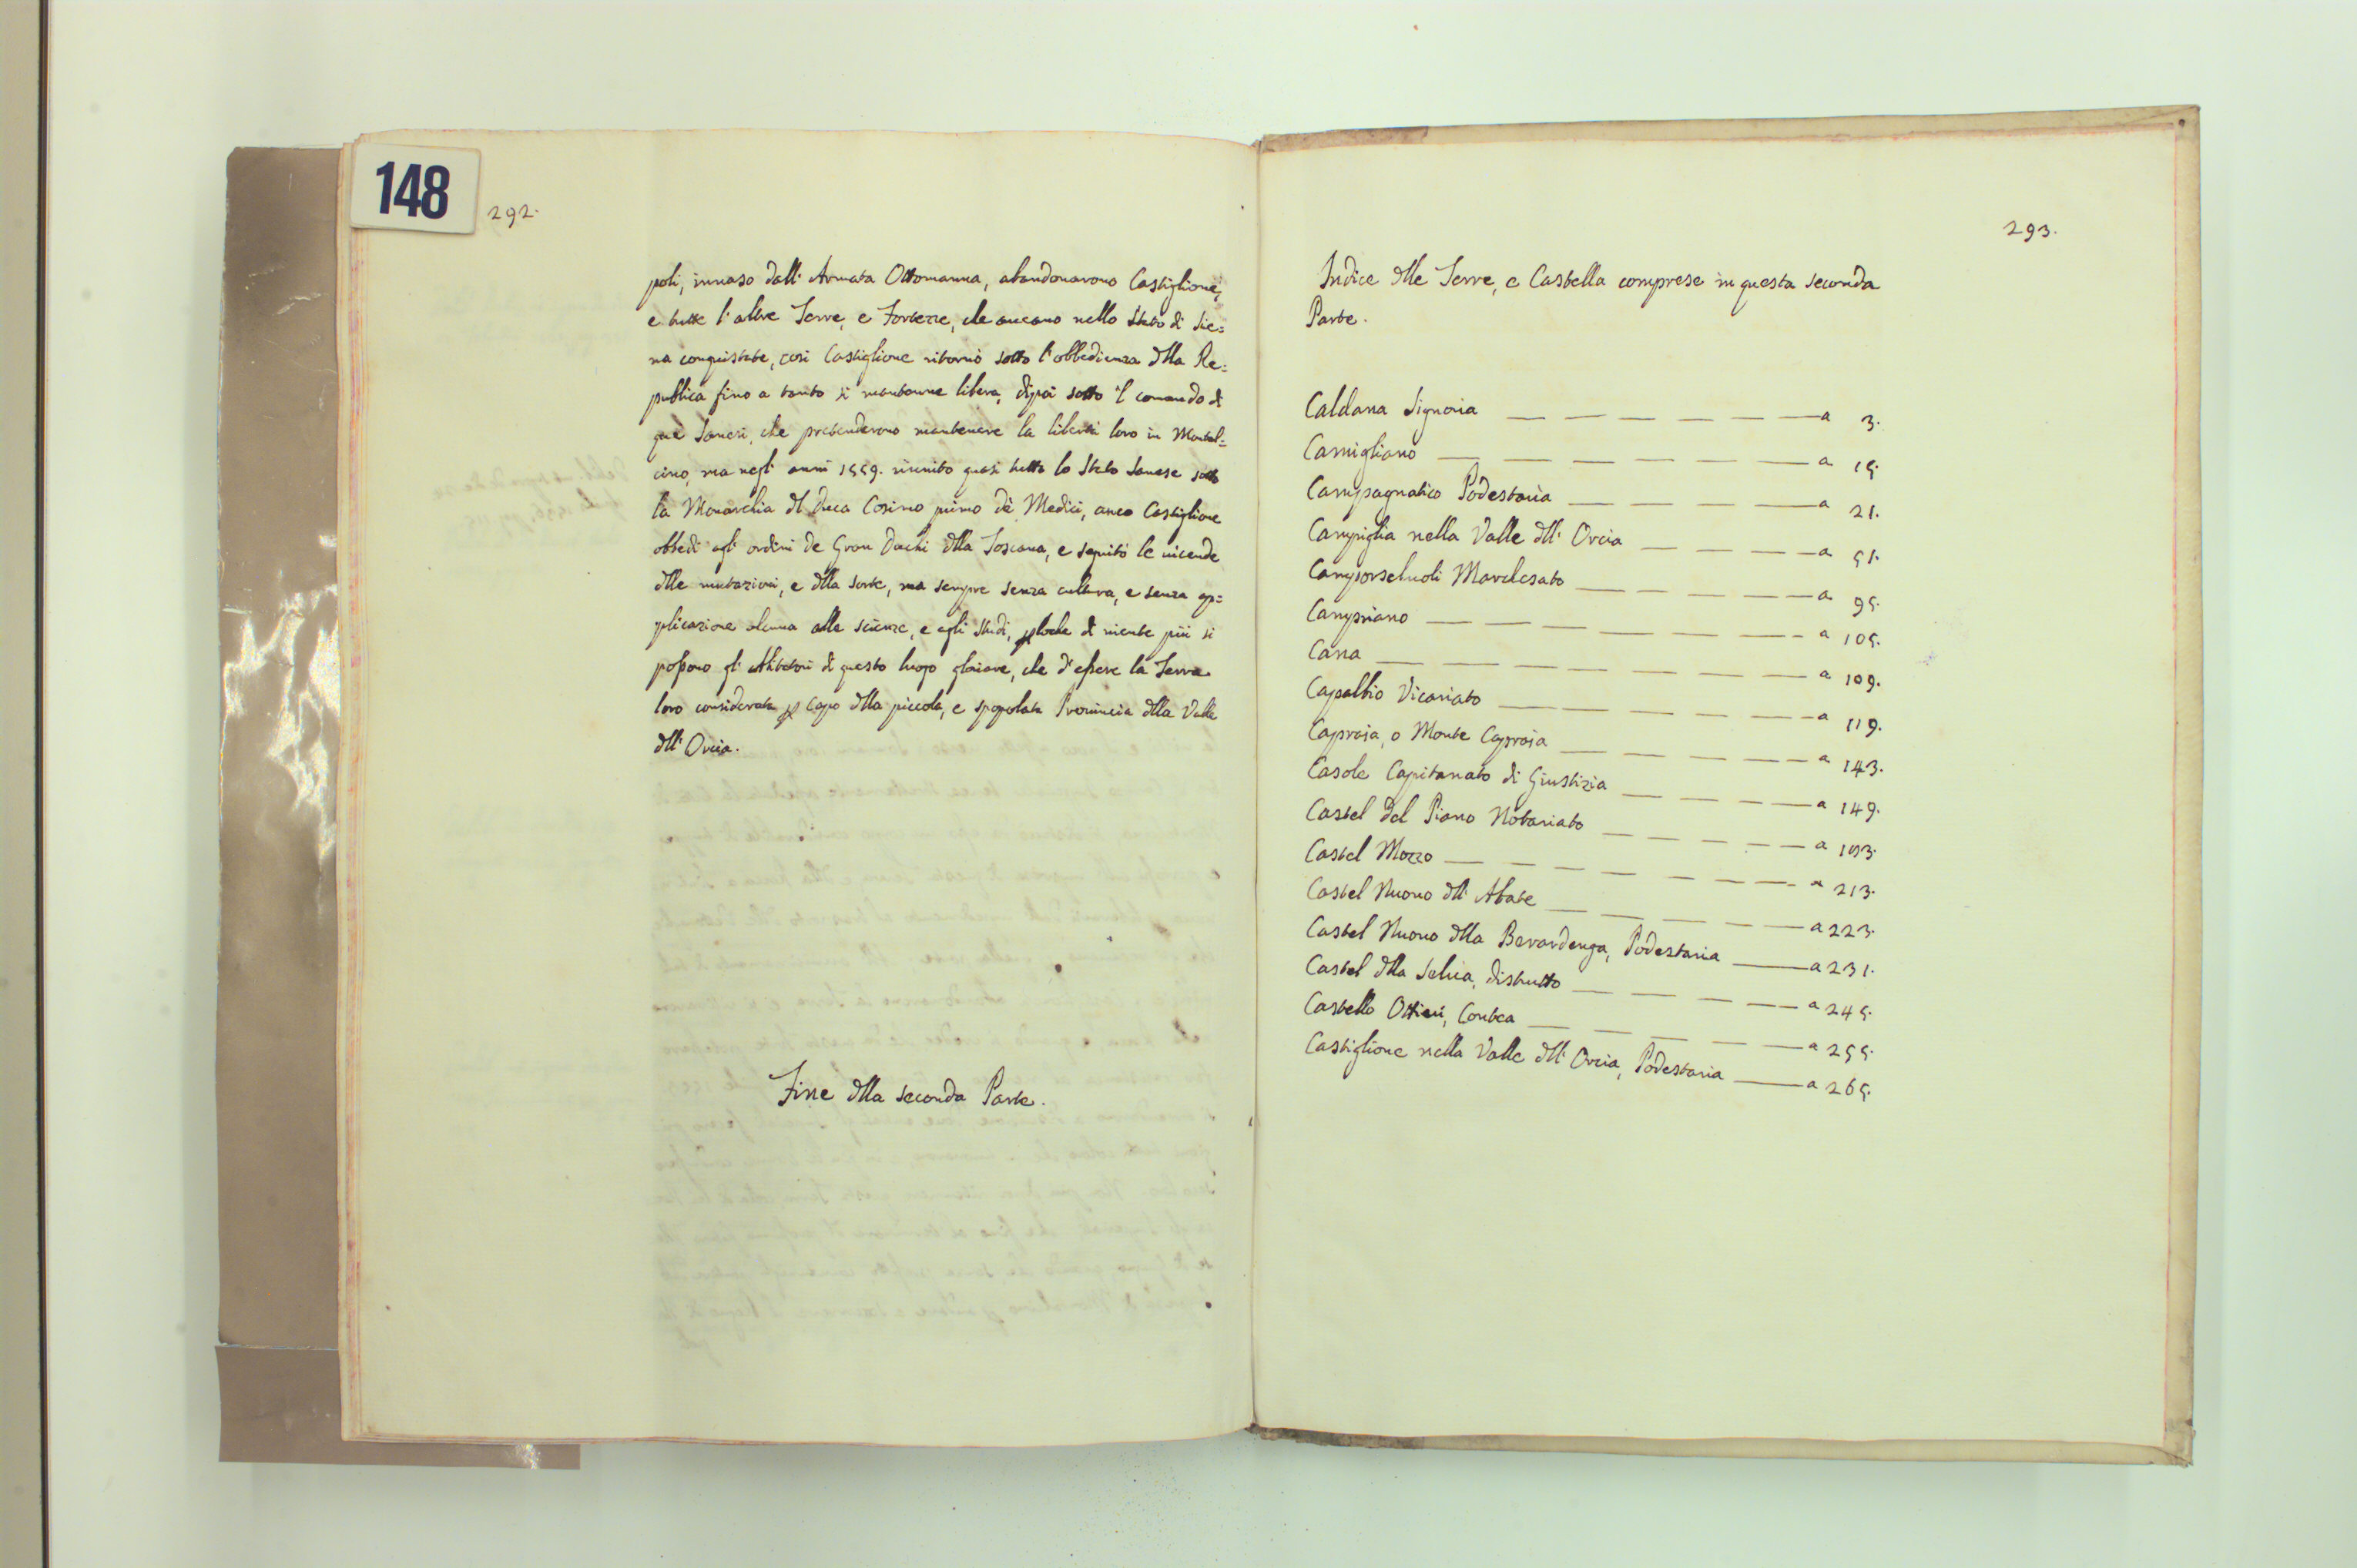 148
292.
poli, inuaso dall' Armata Ottomanna, abandonarono Castiglione,
e tutte l'altre Terre, e Fortezze, che aueano nello Stato di Sie=
na conquistate, così Castiglione ritornò sotto l'obbedienza dlla Re=
publica fino a tanto si mantenne libera, dipoi sotto il comando di
que' Sanesi, che pretenderono mantenere la libertà loro in Montal=
cino, ma negli anni 1559. riunito quasi tutto lo Stato Sanese sotto
la Monarchia dl Duca Cosimo primo de' Medici, anco Castiglione
obbedì agli ordini de Gran Duchi dlla Toscana, e seguitò le uicende
dlle mutazioni, e dlla sorte, ma sempre senza cultura, e senza ap=
plicazione alcuna alle scienze, e agli Studi, ploche di niente più si
possono gl' Abitatori di questo luogo gloriare, che d'essere la Terra
loro considerata p capo dlla piccola, e spopolata Prouincia dlla Valle
dll' Orcia.
Fine dlla seconda Parte.
293.
Indice dlle Terre, e Castella comprese in questa seconda
Parte.
Caldana Signoria — — — — — — a 3.
Camigliano — — — — — — a 15.
Campagnatico Podestaria — — — — a 21.
Campiglia nella Valle dll' Orcia — — — — a 51.
Camporsevoli Marchesato — — — — — a 95.
Campriano — — — — — — — a 105.
Cana — — — — — — — a 109.
Capalbio Vicariato — — — — — — a 119.
Capraia, o Monte Capraia — — — — — a 143.
Casole Capitanato di Giustizia — — — — a 149.
Castel del Piano Notariato — — — — — a 193.
Castel Mozzo — — — — — — a 213.
Castel Nuouo dll' Abate — — — — — a 223.
Castel Nuouo dlla Berardenga, Podestaria — a 231.
Castel dlla Selua, distrutto — — — — — a 245.
Castello Ottieri, Contea — — — — — a 255.
Castiglione nella Valle dll' Orcia, Podestaria — a 265.